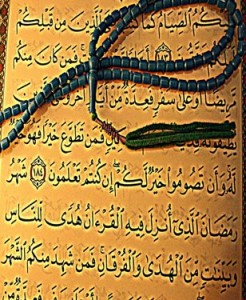 ٱلصِّيَامُ كَمَا ٱلَّذِينَ مِن قَبْلِكُمْ
١٨٣ فَمَن كَانَ مِنكُم
مَّرِيضًا أَوْ عَلَىٰ سَفَرٍ فَعِدَّةٌ مِّنْ أَيَّامٍ أُخَرَ
فَمَن تَطَوَّعَ خَيْرًا فَهُوَ
لَّهُۥ وَأَن تَصُومُوا۟ خَيْرٌ لَّكُمْ إِن كُنتُمْ تَعْلَمُونَ ١٨٤ شَهْرُ
رَمَضَانَ ٱلَّذِىٓ أُنزِلَ فِيهِ ٱلْقُرْءَانُ هُدًى لِّلنَّاسِ
وَبَيِّنَٰتٍ مِّنَ ٱلْهُدَىٰ وَٱلْفُرْقَانِ فَمَن شَهِدَ مِنكُمُ ٱلشَّهْرَ